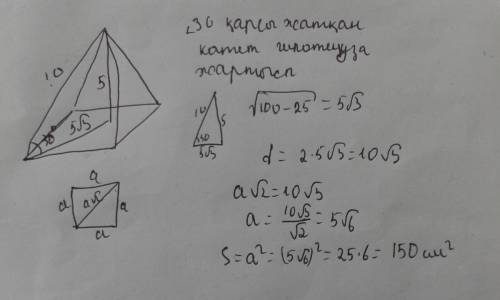 ∠30 қарсы жатқан
катет гипотенуза
жартысы
10
5
30
5√3
10
5
30
5√3
√100-25 = 5√3
d = 2·5√3 = 10√3
a√2 = 10√3
a = 10√3/√2 = 5√6
S = a² = (5√6)² = 25·6 = 150 см²
a
a
a√2
a
a